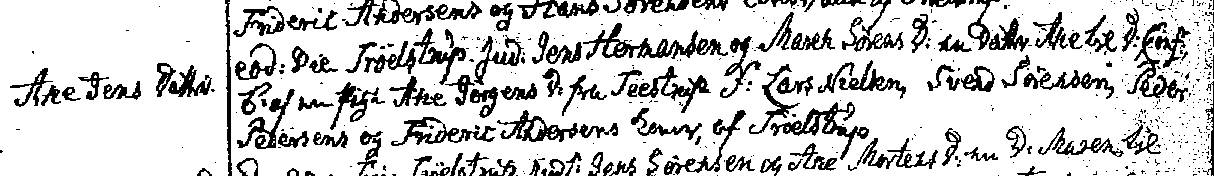 Frideric Andersens og Hans Sørensens
Ane Jens Dattr.
eod: Die Trøelstrup. Jud. Jens Hermansen og Maren Sørens D: en Dattr Ane
b: af en Pige Ane Jørgens D: fra Teestrup F: Lars Nielsen, Svend Sørensen, Peder
Pedersens og Frideric Andersens koner, af Trøelstrup
Trøelstrup Jens Sørensen og Ane Mortens D: en D: Maren